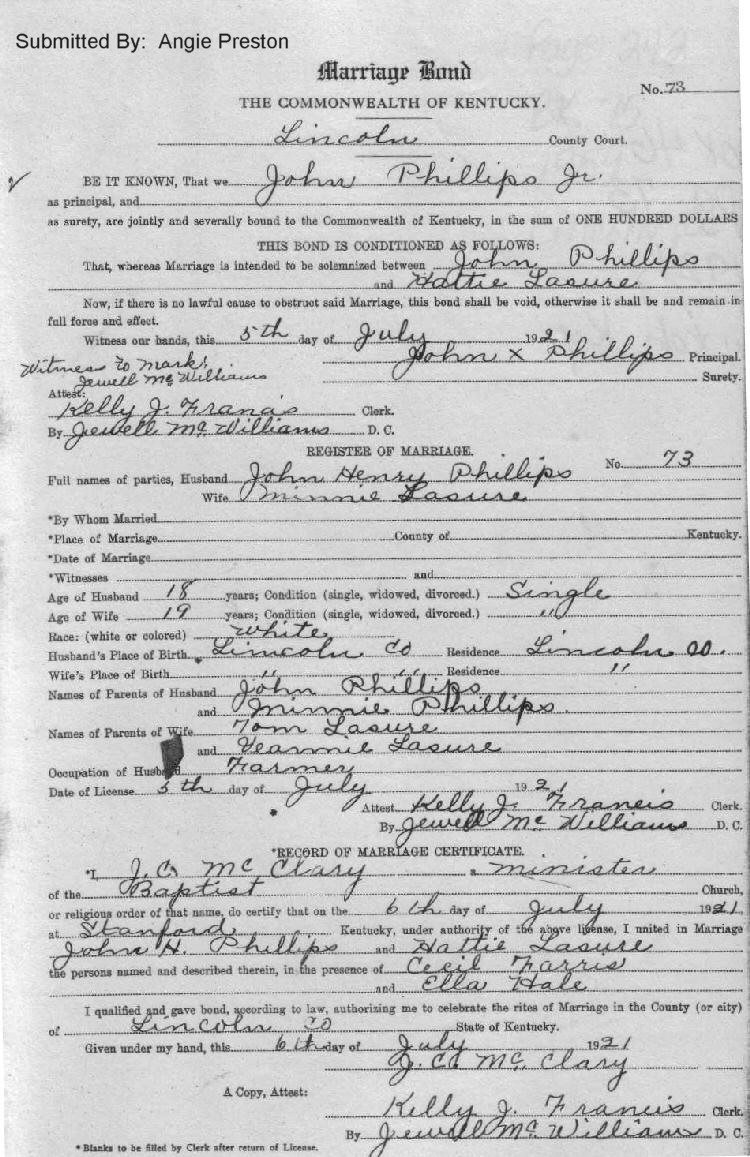 Submitted By: Angie Preston
Marriage Bond
No. 73
THE COMMONWEALTH OF KENTUCKY.
Lincoln County Court.
BE IT KNOWN, That we John Phillips Jr.
as principal, and
as surety, are jointly and severally bound to the Commonwealth of Kentucky, in the sum of ONE HUNDRED DOLLARS
THIS BOND IS CONDITIONED AS FOLLOWS:
That, whereas Marriage is intended to be solemnized between John Phillips
and Hattie Lasure
Now, if there is no lawful cause to obstruct said Marriage, this bond shall be void, otherwise it shall be and remain in
full force and effect.
Witness our hands, this 5th day of July 1921
John x Phillips Principal.
Witness to mark,
Jewell McWilliams
Surety.
Attest:
Kelly J. Francis Clerk.
By Jewell McWilliams D. C.
REGISTER OF MARRIAGE.
No. 73
Full names of parties, Husband John Henry Phillips
Wife Minnie Lasure
*By Whom Married
*Place of Marriage County of Kentucky.
*Date of Marriage
*Witnesses and
Age of Husband 18 years; Condition (single, widowed, divorced.) Single
Age of Wife 19 years; Condition (single, widowed, divorced.) "
Race: (white or colored) white
Husband's Place of Birth Lincoln Co Residence Lincoln Co.
Wife's Place of Birth " " Residence "
Names of Parents of Husband John Phillips
and Minnie Phillips.
Names of Parents of Wife Tom Lasure
and Lasure
Occupation of Husband Farmer
Date of License 5th day of July 1921
Attest Kelly J. Francis Clerk.
By Jewell McWilliams D. C.
*RECORD OF MARRIAGE CERTIFICATE.
*I, J.C. McClary a minister
of the Baptist Church,
or religious order of that name, do certify that on the 6th day of July 1921
at Stanford Kentucky, under authority of the above license, I united in Marriage
John H. Phillips and Hattie Lasure
the persons named and described therein, in the presence of Cecil Farris
and Ella Hale
I qualified and gave bond, according to law, authorizing me to celebrate the rites of Marriage in the County (or city)
of Lincoln Co State of Kentucky.
Given under my hand, this 6th day of July 1921
J.C. McClary
A Copy, Attest:
Kelly J. Francis Clerk.
By Jewell McWilliams D. C.
*Blanks to be filled by Clerk after return of License.